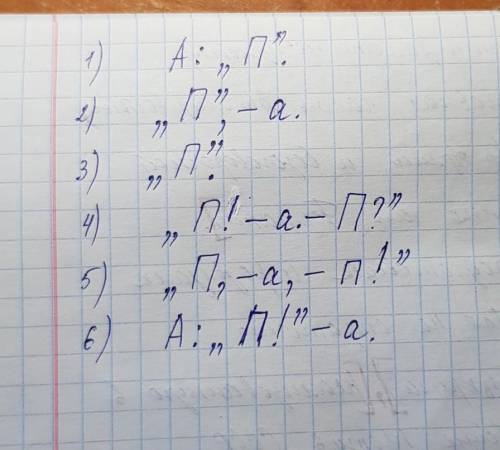 1) А: „П".
2) „П", – а.
3) „П."
4) „П! – а. – П?"
5) „П, – а, – п!"
6) А: „П!" – а.